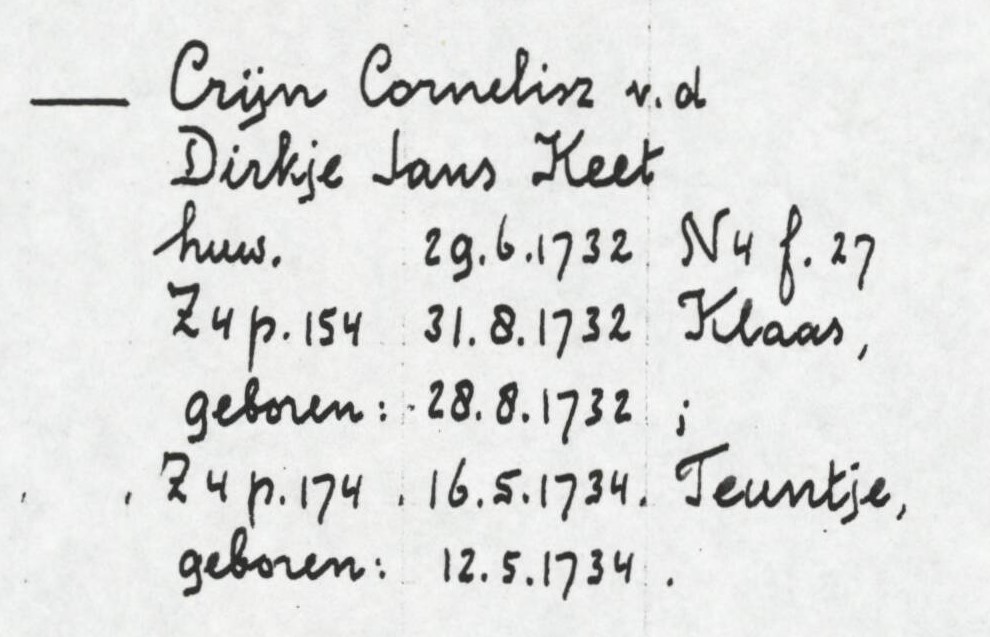 — Crijn Cornelisz v.d
Dirkje Jans Keet
huw. 29.6.1732 N4 f. 27
Z4 p. 154 31.8.1732 Klaas,
geboren: 28.8.1732 ;
Z4 p. 174 . 16.5.1734. Teuntje,
geboren: 12.5.1734 .